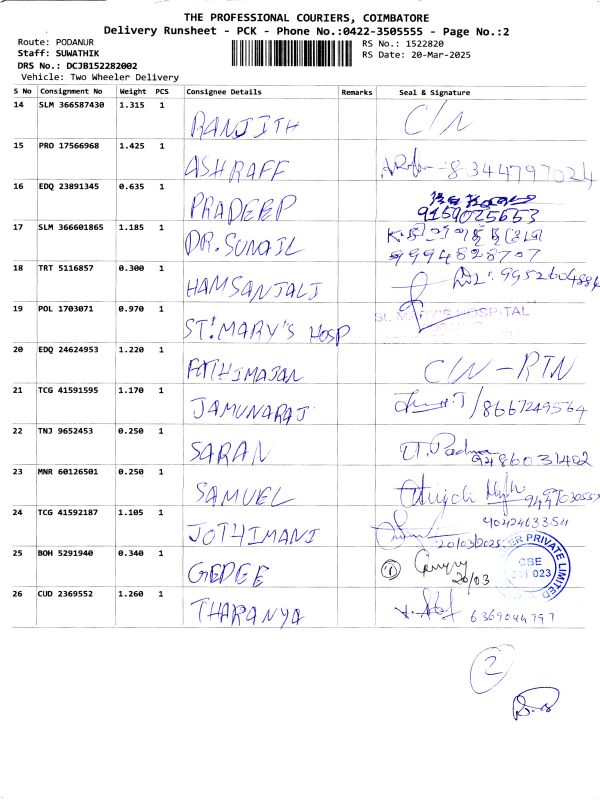 THE PROFESSIONAL COURIERS, COIMBATORE
Delivery Runsheet - PCK - Phone No.:0422-3505555 - Page No.:2
Route: PODANUR
Staff: SUWATHIK
DRS No.: DCJB152282002
Vehicle: Two Wheeler Delivery
RS No.: 1522820
RS Date: 20-Mar-2025
S No Consignment No Weight PCS Consignee Details Remarks Seal & Signature
14 SLM 366587430 1.315 1 RANJITH C/N
15 PRO 17566968 1.425 1 ASHRAFF 8344797024
16 EDQ 23891345 0.635 1 PRADEEP
9159025653
17 SLM 366601865 1.185 1 DR.SUNAIL
9994828707
18 TRT 5116857 0.300 1 HAMSANJALI
19 POL 1703071 0.970 1 ST.MARY'S HOSP ST. MARY'S HOSPITAL
20 EDQ 24624953 1.220 1 FATHIMAJAN C/N-RTN
21 TCG 41591595 1.170 1 JAMUNARAJ /8667249564
22 TNJ 9652453 0.250 1 SARAN 9486031402
23 MNR 60126501 0.250 1 SAMUEL
24 TCG 41592187 1.105 1 JOTHIMANI
20/03/2025
25 BOH 5291940 0.340 1 GEDEE 20/03
PRIVATE LIMITED
CBE
023
26 CUD 2369552 1.260 1 THARANYA 6369044797
2